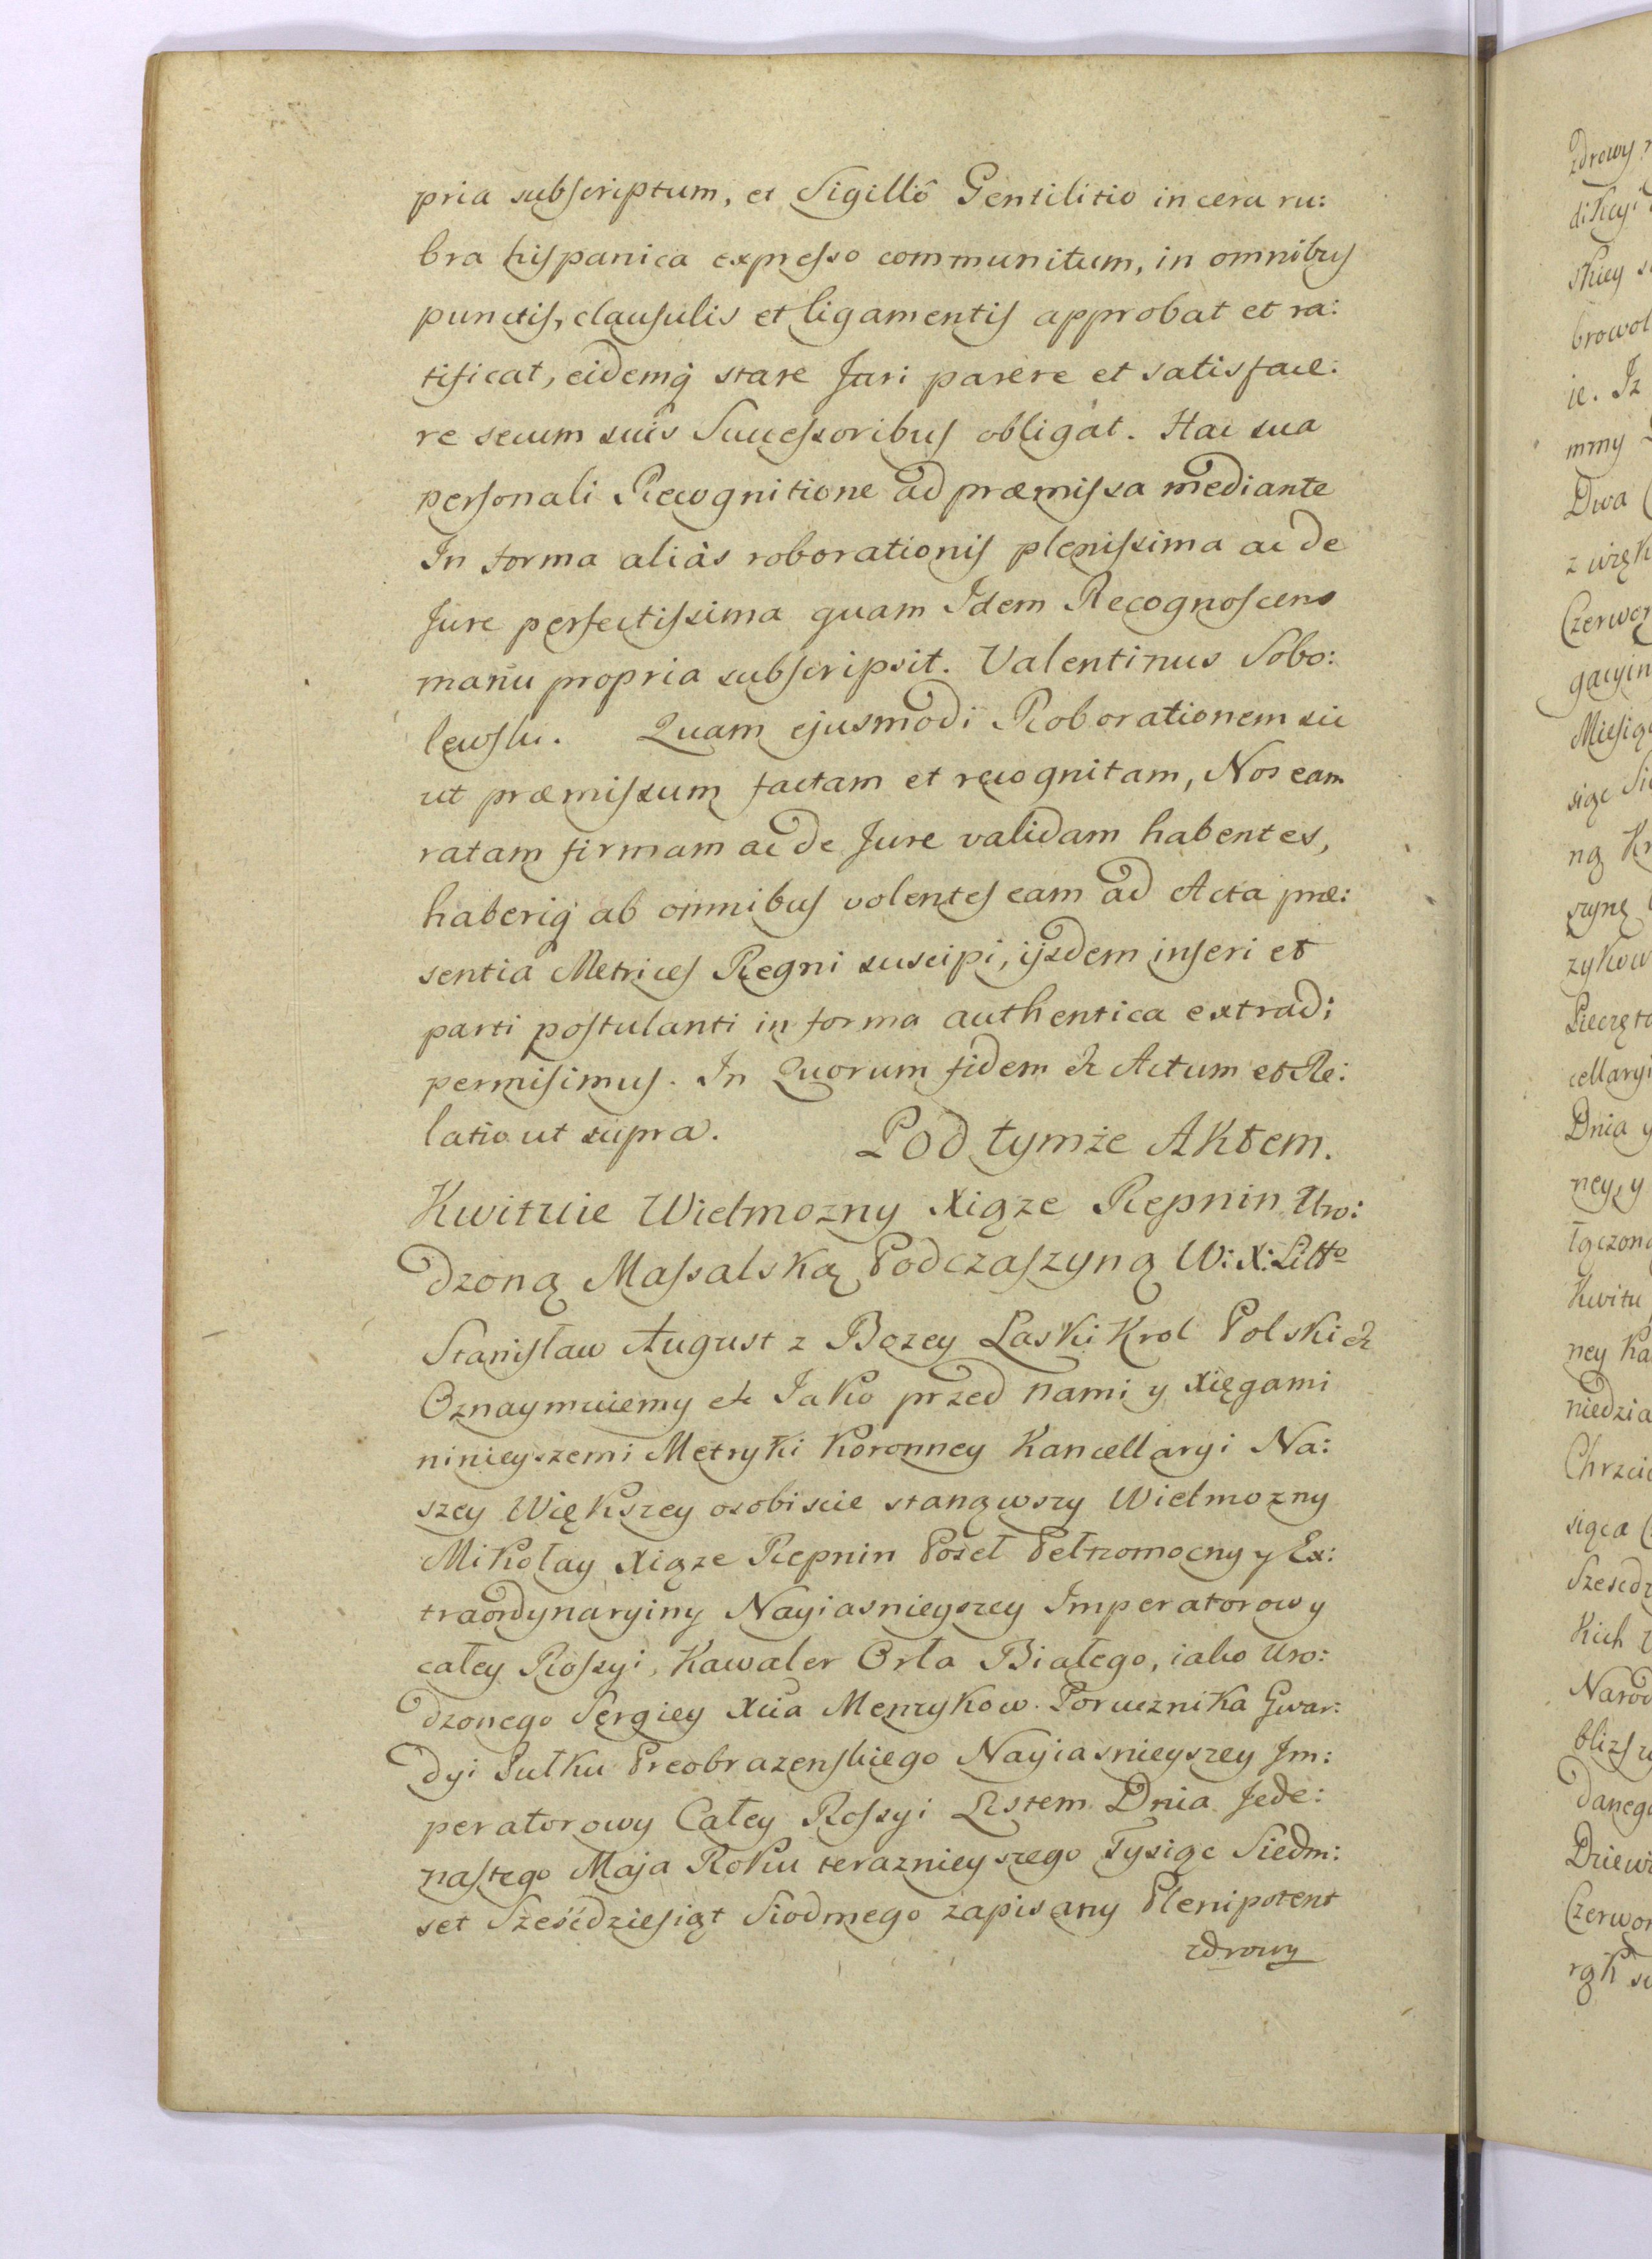 pria subscriptum, et Sigillô Gentilitio in cera ru:
bra hispanica expresso communitum, in omnibus
punctis, clausulis et ligamentis approbat et ra:
tificat, eidemq̃ stare Juri parere et satisface:
re secum suis Successoribus obligat. Hac sua
personali Recognitione ad præmissa mediante
In forma aliàs roborationis plenissima ac de
Jure perfectissima quam Idem Recognoscens
manu propria subscripsit. Valentinus Sobo:
lewski. Quam ejusmodi Roborationem sic
ut præmissum factam et recognitam, Nos eam
ratam firmam ac de Jure validam habentes,
haberiq̃ ab omnibus volentes eam ad Acta præ:
sentia Metrices Regni suscipi, ijsdem inseri et
parti postulanti in forma authentica extradi
permisimus. In Quorum fidem &c Actum et Re:
latio ut supra. Pod tymże Aktem.
Kwituie Wielmozny Xiąze Repnin Uro:
dzoną Massalską Podczaszyną W: X: Litto
Stanisław August z Bozey Laski Krol Polski &c
Oznaymuiemy &c Iako przed nami y Xięgami
ninieyszemi Metryki Koronney Kancellaryi Na:
szey Większey osobiscie stanąwszy Wielmozny
Mikołay Xiąze Repnin Poseł Pełnomocny y Ex:
traordynaryiny Nayiasnieyszey Imperatorowy
całey Rossyi, Kawaler Orła Białego, iako Uro:
dzonego Sergiey Xcia Menzykow Porucznika Gwar:
dyi Pułku Preobrazenskiego Nayiasnieyszey Im:
peratorowy Całey Rossyi Listem Dnia Jede:
nastego Maja Roku teraznieyszego Tysiąc Siedm:
set Sześćdziesiąt Siodmego zapisany Plenipotent
zdrowy